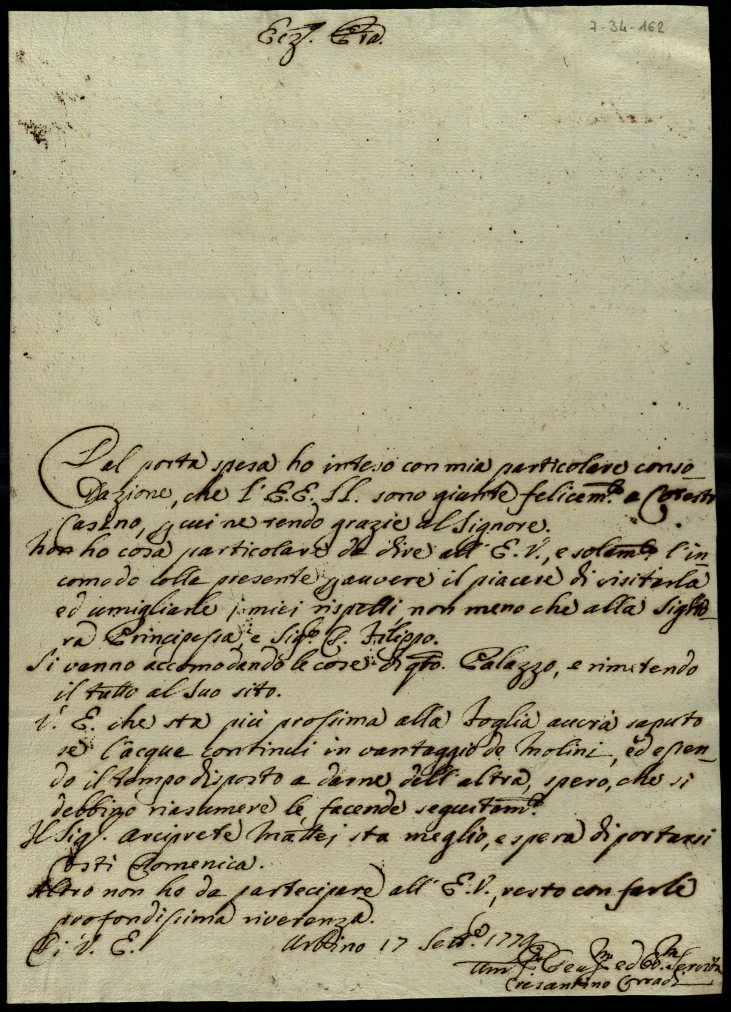 7-34-162
Ecz.ª Pra.
Dal porta spesa ho inteso con mia particolare conso
lazione, che l'E.E. LL. sono giunte felicem.te a Cotesto
Casino, p cui ne rendo grazie al Signore.
Non ho cosa particolare da dire all' E. V., e solam.te l'in
comodo colla presente p auvere il piacere di visitarla
ed umigliarle i miei rispetti non meno che alla Sig.ra
Principessa, e Sig.r D. Filippo.
Si vanno accomodando le cose di qto. Palazzo, e rimetendo
il tutto al suo sito.
V. E. che sta più prossima alla Foglia auerà saputo
se l'acque continui in vantaggio de Molini, ed essen-
do il tempo disposto a darne dell'altra, spero, che si
debbino riasumere le facende seguitam.te
Il Sig.r Arciprete Mattei sta meglio, e spera di portarsi
costì Domenica.
Altro non ho da partecipare all' E. V., resto con farle
profondissima riverenza.
Di V. E.
Urbino 17 Sett.e 1779
Um.o Deu.mo ed Ob.mo Servit.e
Cresantino Corradi